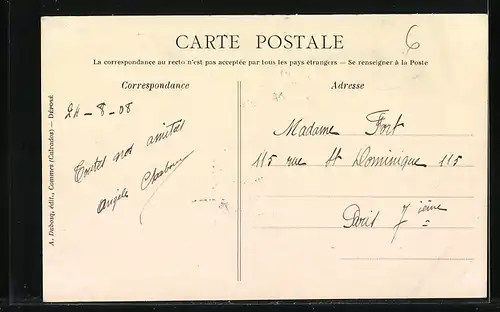 CARTE POSTALE
6
La correspondance au recto n'est pas acceptée par tous les pays étrangers — Se renseigner à la Poste
Correspondance
24 - 8 - 08
Toutes nos amitiés
Angèle
Adresse
Madame Fort
115 rue St Dominique 115
Paris 7ième
A. Dubosq, édit., Commes (Calvados) — DÉPOSÉ